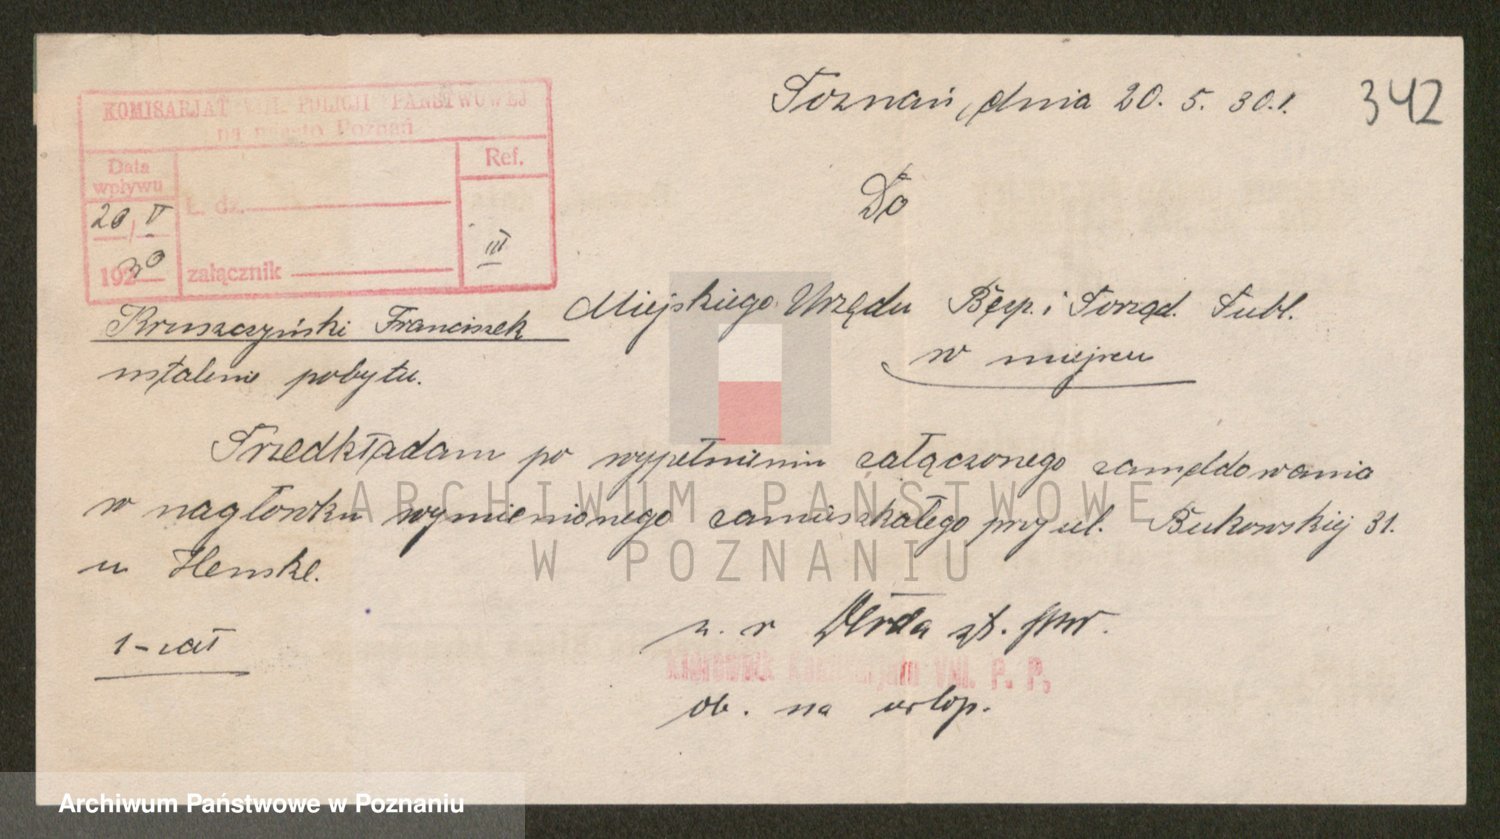 Poznań, dnia 20. 5. 30.r.
342
KOMISARJAT VIII. POLICJI PAŃSTWOWEJ
na miasto Poznań
Data
wpływu
Ref.
L. dz.
20/V
III
1930
załącznik
Do
Miejskiego Urzędu Bezp. i Porząd. Publ.
w miejscu
Kruszczyński Franciszek
ustalenie pobytu.
Przedkładam po wypełnieniu załączonego zameldowania
w nagłówku wymienionego zamieszkałego przy ul. Bukowskiej 31.
u Henskl.
1-zał
z. r
Kierownik Komisarjatu VIII. P. P.
ob. na urlop.
ARCHIWUM PAŃSTWOWE
W POZNANIU
Archiwum Państwowe w Poznaniu